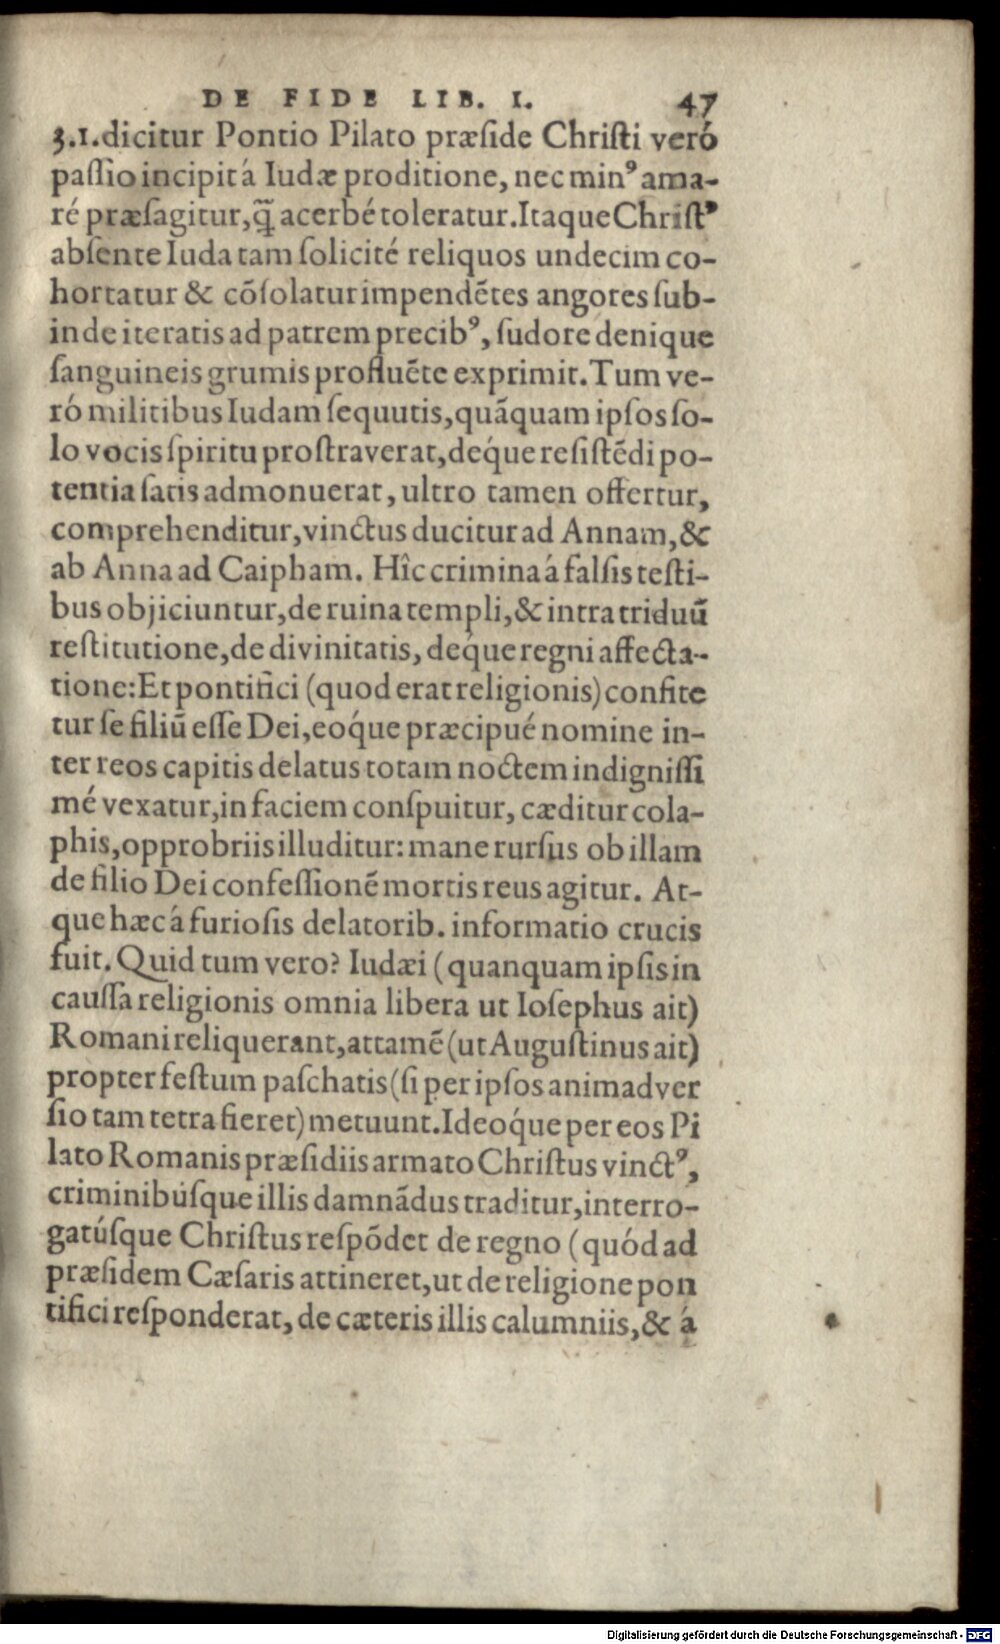 DE FIDE LIB. I. 47
3.1. dicitur Pontio Pilato præſide Chriſti veró
paſſio incipit á Iudæ proditione, nec minꝰ ama-
ré præſagitur, q̃ acerbé toleratur. Itaque Chriſtꝰ
abſente Iuda tam ſolicité reliquos undecim co-
hortatur & cõſolatur impendẽtes angores ſub-
inde iteratis ad patrem precibꝰ, ſudore denique
ſanguineis grumis profluẽte exprimit. Tum ve-
ró militibus Iudam ſequutis, quãquam ipſos ſo-
lo vocis ſpiritu proſtraverat, deq́ue reſiſtẽdi po-
tentia ſatis admonuerat, ultro tamen offertur,
comprehenditur, vinctus ducitur ad Annam, &
ab Anna ad Caipham. Hîc crimina á falſis teſti-
bus objiciuntur, de ruina templi, & intra triduũ
reſtitutione, de divinitatis, deq́ue regni affecta-
tione: Et pontifici (quod erat religionis) confite
tur ſe filiũ eſſe Dei, eoq́ue præcipué nomine in-
ter reos capitis delatus totam noctem indigniſſi
mé vexatur, in faciem conſpuitur, cæditur cola-
phis, opprobriis illuditur: mane rurſus ob illam
de filio Dei confeſſionẽ mortis reus agitur. At-
que hæc á furioſis delatorib. informatio crucis
fuit. Quid tum vero? Iudæi (quanquam ipſis in
cauſſa religionis omnia libera ut Ioſephus ait)
Romani reliquerant, attamẽ (ut Auguſtinus ait)
propter feſtum paſchatis (ſi per ipſos animadver
ſio tam tetra fieret) metuunt. Ideoq́ue per eos Pi
lato Romanis præſidiis armato Chriſtus vinctꝰ,
criminibúſque illis damnãdus traditur, interro-
gatúſque Chriſtus reſpõdet de regno (quód ad
præſidem Cæſaris attineret, ut de religione pon
tifici reſponderat, de cæteris illis calumniis, & á
Digitalisierung gefördert durch die Deutsche Forschungsgemeinschaft - DFG